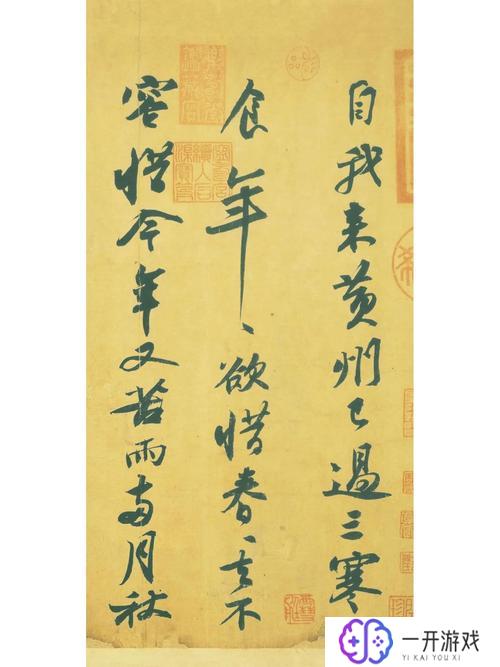 自我来黄州已過三寒
食年〻欲惜春〻去不
容惜今年又苦雨兩月秋
一开游戏
YI KAI YOU XI